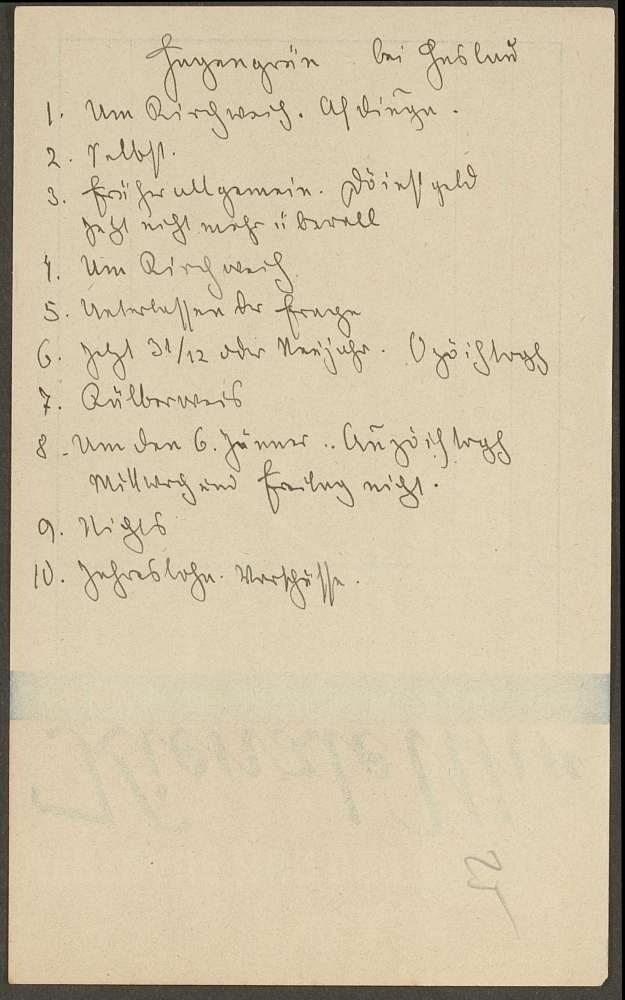 Hagengrün bei Haslau
1. Um Kirchweih. Afdinga.
2. Selbst.
3. Früher allgemein. Döinstgeld
Jetzt nicht mehr überall
4. Um Kirchweih
5. Unterlassen der Frage
6. Jetzt 31/12 oder Neujahr.
7. Kälberweis
8. Um den 6. Jänner.
Mittwoch und Freitag nicht.
9. Nichts
10. Jahreslohn. Vorschüsse.